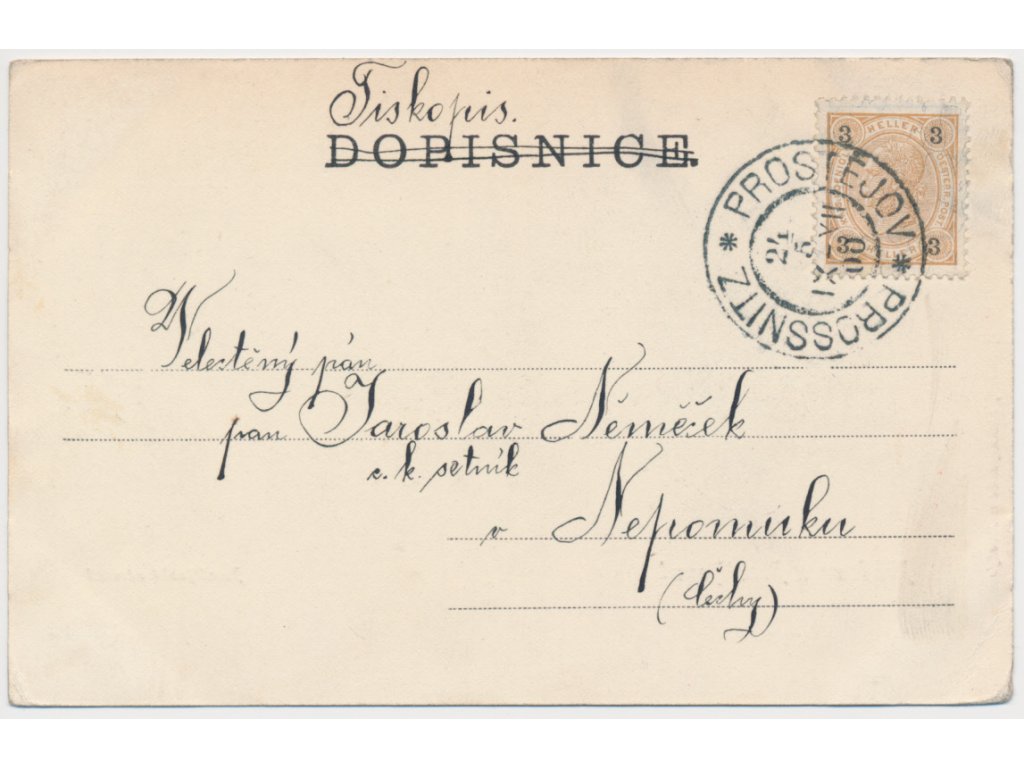 Tiskopis.
DOPISNICE.
3 HELLER 3
3 HELLER 3
PROSTĚJOV
PROSSNITZ
24
5
VII
00
Velectěný pán
pan Jaroslav Němeček
c. k. setník
v Nepomuku
(Čechy)